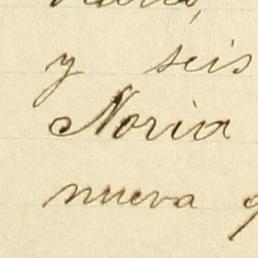 y seis
Noria
nueva